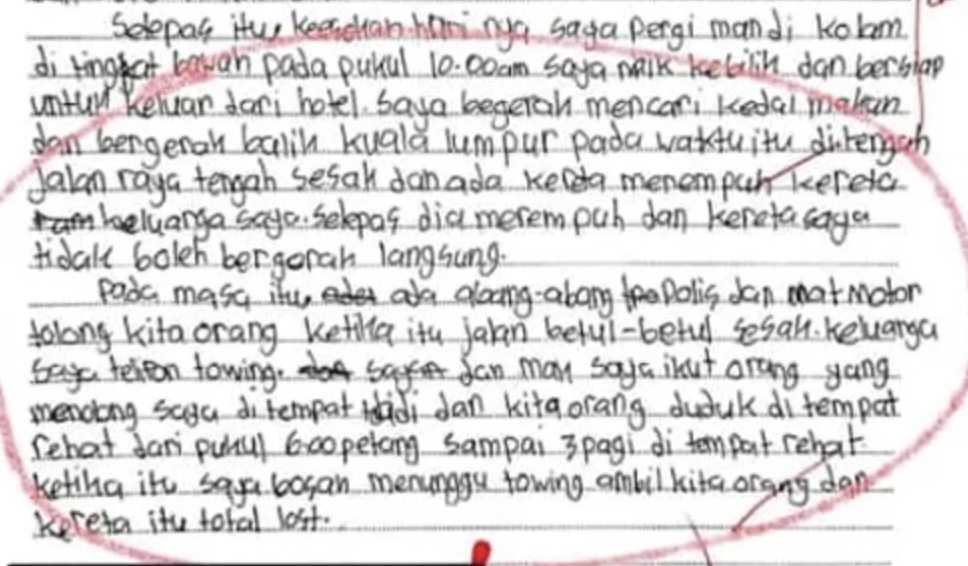 Selepas itu, keesokan hari nya saya pergi mandi kolam
di tingkat bawah pada pukul 10.00am saya naik kebilik dan bersiap
untuk keluar dari hotel. Saya begerak mencari kedai makan
dan bergerak balik kuala lumpur pada waktu itu ditengah
jalan raya tengah sesak dan ada kereta merempuh kereta
keluarga saya. Selepas dia merempuh dan kereta saya
tidak boleh bergerak langsung.
Pada masa itu, ada abang-abang Polis dan mat motor
tolong kita orang ketika itu jalan betul-betul sesak. Keluarga
saya telifon towing. dan mak saya ikut orang yang
menolong saya di tempat tadi dan kita orang duduk di tempat
rehat dari pukul 6:00 petang sampai 3 pagi di tempat rehat
ketika itu saya bosan menunggu towing ambil kita orang dan
kereta itu total lost.